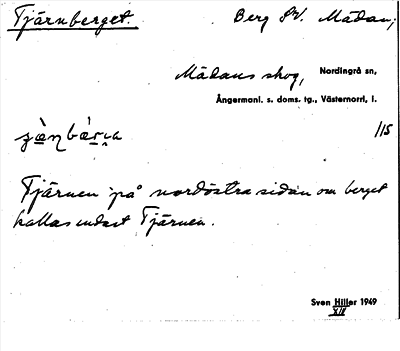 Tjärnberget. Berg SV. Mädan;
Mädans skog, Nordingrå sn,
Ångermanl. s. doms. tg., Västernorrl. l.
1/15
Tjärnen på nordöstra sidan om berget
kallas endast Tjärnen.
Sven Hiller 1949
XII